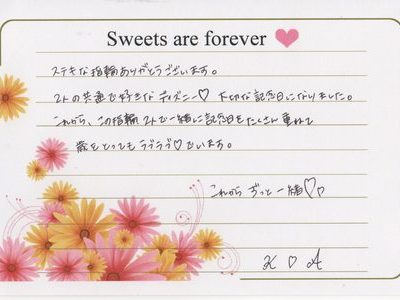 Sweets are forever
ステキな指輪ありがとうございます。
2人の共通で好きなディズニー♡ 大切な記念日になりました。
これから、この指輪2人で一緒に記念日をたくさん重ねて
歳をとってもラブラブ♡でいます。
これから ずっと一緒♡♡
K ♡ A